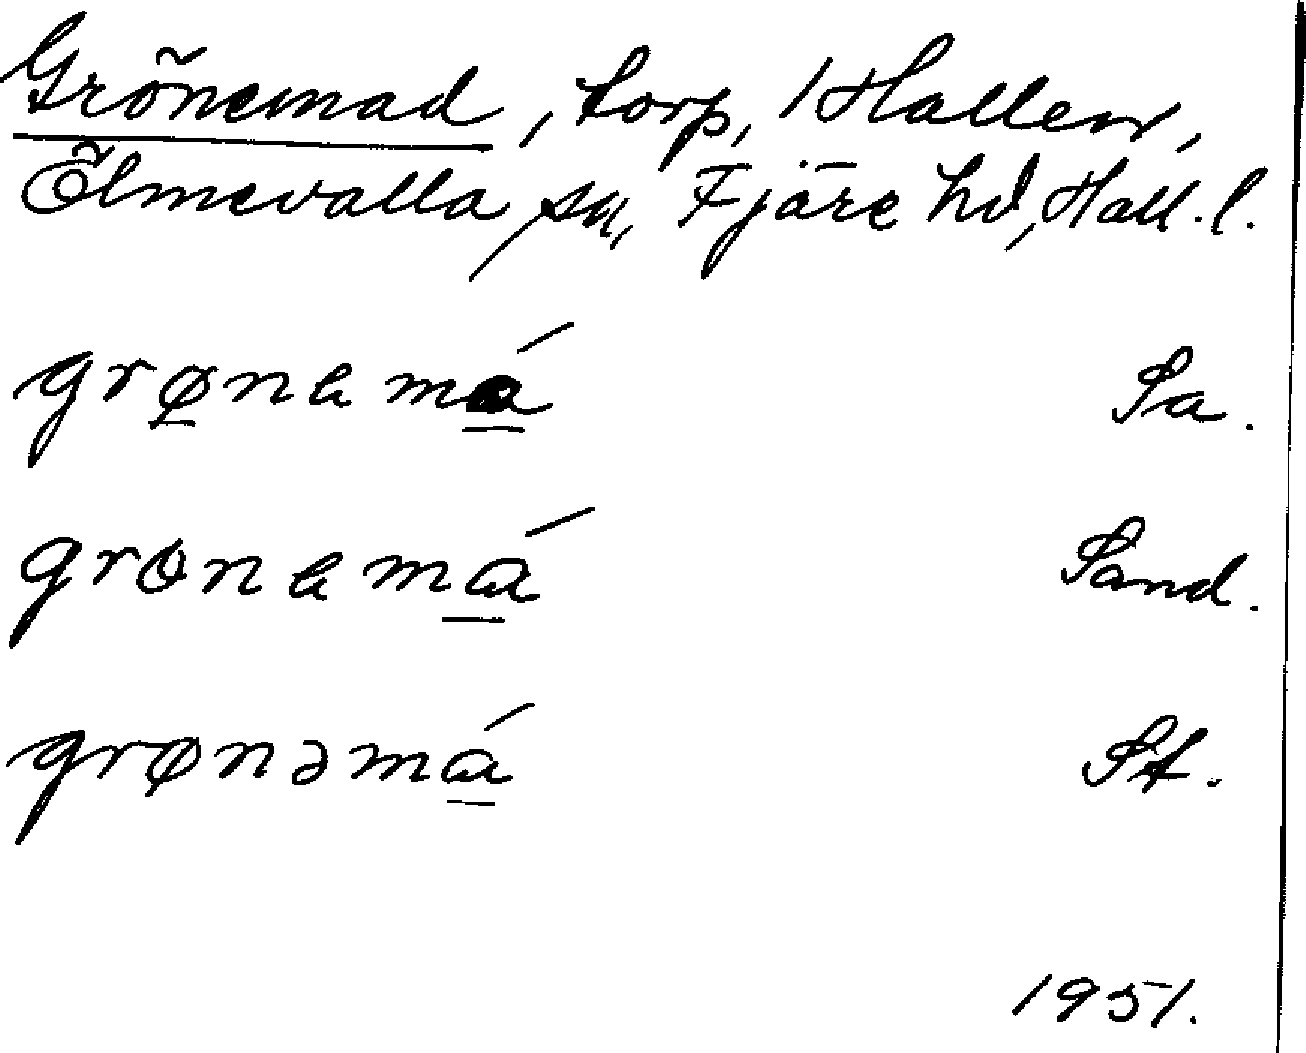 Grönemad, torp, 1 Hallen,
Ölmevalla sn, Fjäre hd, Hall. l.
grø̱nemá̱ Sa.
gronemá̱ Sand.
grønəmá̱ St.
1951.